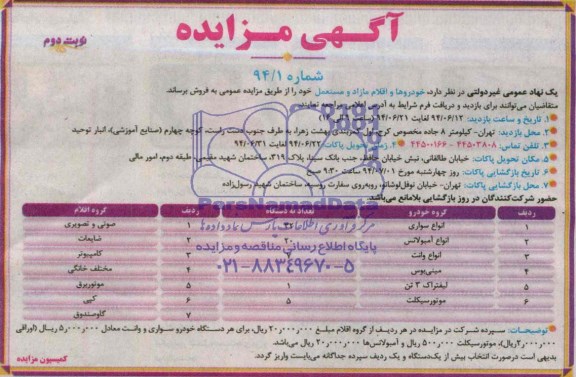 آگهی مزایده
نوبت دوم
شماره ۹۴/۱
یک نهاد عمومی غیردولتی در نظر دارد، خودروها و اقلام مازاد و مستعمل خود را از طریق مزایده عمومی به فروش برساند.
متقاضیان می‌توانند برای بازدید و دریافت فرم شرایط به آدرس اعلامی مراجعه نمایند.
۱. تاریخ و ساعت بازدید: ۹۴/۰۶/۱۲ لغایت ۹۴/۰۶/۲۱ (ساعت ۹ الی
۲. محل بازدید: تهران- کیلومتر ۸ جاده مخصوص کرج، اول کمربندی بهشت زهرا، به طرف جنوب سمت راست، کوچه چهارم (صنایع آموزشی)، انبار توحید
۳. تلفن تماس: ۴۴۵۰۳۸۰۸ - ۴۴۵۰۰۱۶۶
۴. زمان تحویل پاکات: ۹۴/۰۶/۲۲ لغایت ۹۴/۰۶/۳۱
۵. مکان تحویل پاکات: خیابان طالقانی، نبش خیابان حافظ، جنب بانک سینا، پلاک ۳۱۹، ساختمان شهید مقیمی، طبقه دوم، امور مالی
۶. تاریخ بازگشایی پاکات: روز چهارشنبه مورخ ۹۴/۰۷/۰۱ ساعت ۹:۳۰ صبح
۷. محل بازگشایی پاکات: تهران- خیابان نوفل‌لوشاتو، روبه‌روی سفارت روسیه، ساختمان شهید رسول‌زاده
حضور شرکت‌کنندگان در روز بازگشایی بلامانع می‌باشد.
ردیف گروه خودرو تعداد به دستگاه ردیف گروه اقلام
۱ انواع سواری ۱ صوتی و تصویری
۲ انواع آمبولانس ۲۰ ۲ ضایعات
۳ انواع وانت ۳ کامپیوتر
۴ مینی‌بوس ۴ مختلف خانگی
۵ لیفتراک ۳ تن ۱ ۵ موتوربرق
۶ موتورسیکلت ۵ ۶ کپی
۷ گاوصندوق
توضیحات: سپرده شرکت در مزایده در هر ردیف از گروه اقلام مبلغ ۲۰٫۰۰۰٫۰۰۰ ریال، برای هر دستگاه خودرو سواری و وانت معادل ۵٫۰۰۰٫۰۰۰ ریال (اوراقی
۲٫۰۰۰٫۰۰۰ ریال)، موتورسیکلت ۵۰۰٫۰۰۰ ریال و آمبولانس‌ها ۲۰٫۰۰۰٫۰۰۰ ریال می‌باشد.
بدیهی است درصورت انتخاب بیش از یک‌دستگاه و یک ردیف سپرده جداگانه می‌بایست واریز گردد.
کمیسیون مزایده
ParsNamadData
مرکز فرآوری اطلاعات پارس نماد داده‌ها
پایگاه اطلاع رسانی مناقصه و مزایده
۰۲۱-۸۸۳۴۹۶۷۰-۵